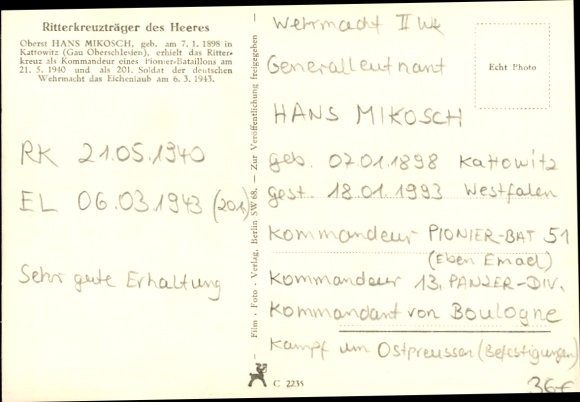 Ritterkreuzträger des Heeres
Oberst HANS MIKOSCH, geb. am 7. 1. 1898 in
Kattowitz (Gau Oberschlesien), erhielt das Ritter-
kreuz als Kommandeur eines Pionier-Bataillons am
21. 5. 1940 und als 201. Soldat der deutschen
Wehrmacht das Eichenlaub am 6. 3. 1943.
RK 21.05.1940
EL 06.03.1943 (201)
Sehr gute Erhaltung
Film - Foto - Verlag, Berlin SW 68. — Zur Veröffentlichung freigegeben —
C 2235
Wehrmacht II WK
Generalleutnant
Echt Photo
HANS MIKOSCH
geb. 07.01.1898 Kattowitz
gest. 18.01.1993 Westfalen
Kommandeur PIONIER-BAT 51
(Eben Emael)
Kommandeur 13. PANZER-DIV.
Kommandant von Boulogne
Kampf um Ostpreussen (Befestigungen)
36€